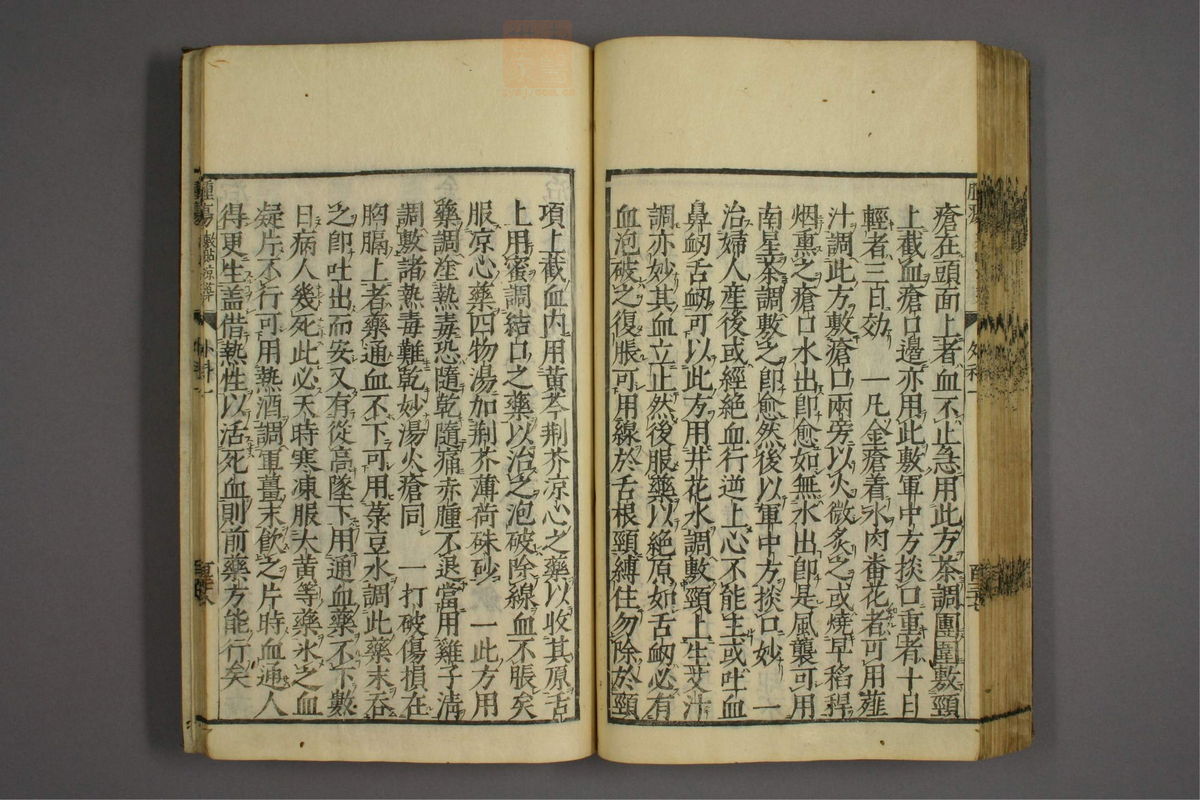 瘡在頭面上者血不止急用此方茶調團圍敷頸
上截血瘡口邊亦用此敷軍中方掞口重者十日
輕者三日效　一凡金瘡着水肉番花者可用薤
汁調此方敷瘡口兩旁以火微炙之或燒早稻稈
烟熏之瘡口水出即愈如無水出即是風襲可用
南星茶調敷之即愈然後以軍中方掞口妙　一
治婦人産後或經絶血行逆上心不能生或吐血
鼻衂舌衂可以此方用井花水調敷頸上生艾汁
調亦妙其血立止然後服藥以絶原如舌衂必有
血泡破之復脹可用線於舌根頸縛住勿除於頸
項上截血内用黃芩荆芥凉心之藥以收其原舌
上用蜜調結口之藥以治之泡破除線血不脹矣
服凉心藥四物湯加荆芥薄荷硃砂　一此方用
藥調塗熱毒恐隨乾隨痛赤腫不退當用雞子清
調敷諸熱毒難乾妙湯火瘡同　一打破傷損在
胸膈上者藥通血不下可用菉豆水調此藥末吞
之即吐出而安又有從高墜下用通血藥不下數
日病人幾死此必天時寒凍服大黃等藥氷之血
凝片不行可用熱酒調軍薑末飲之片時血通人
得更生盖借熱性以活死血則前藥方能行矣